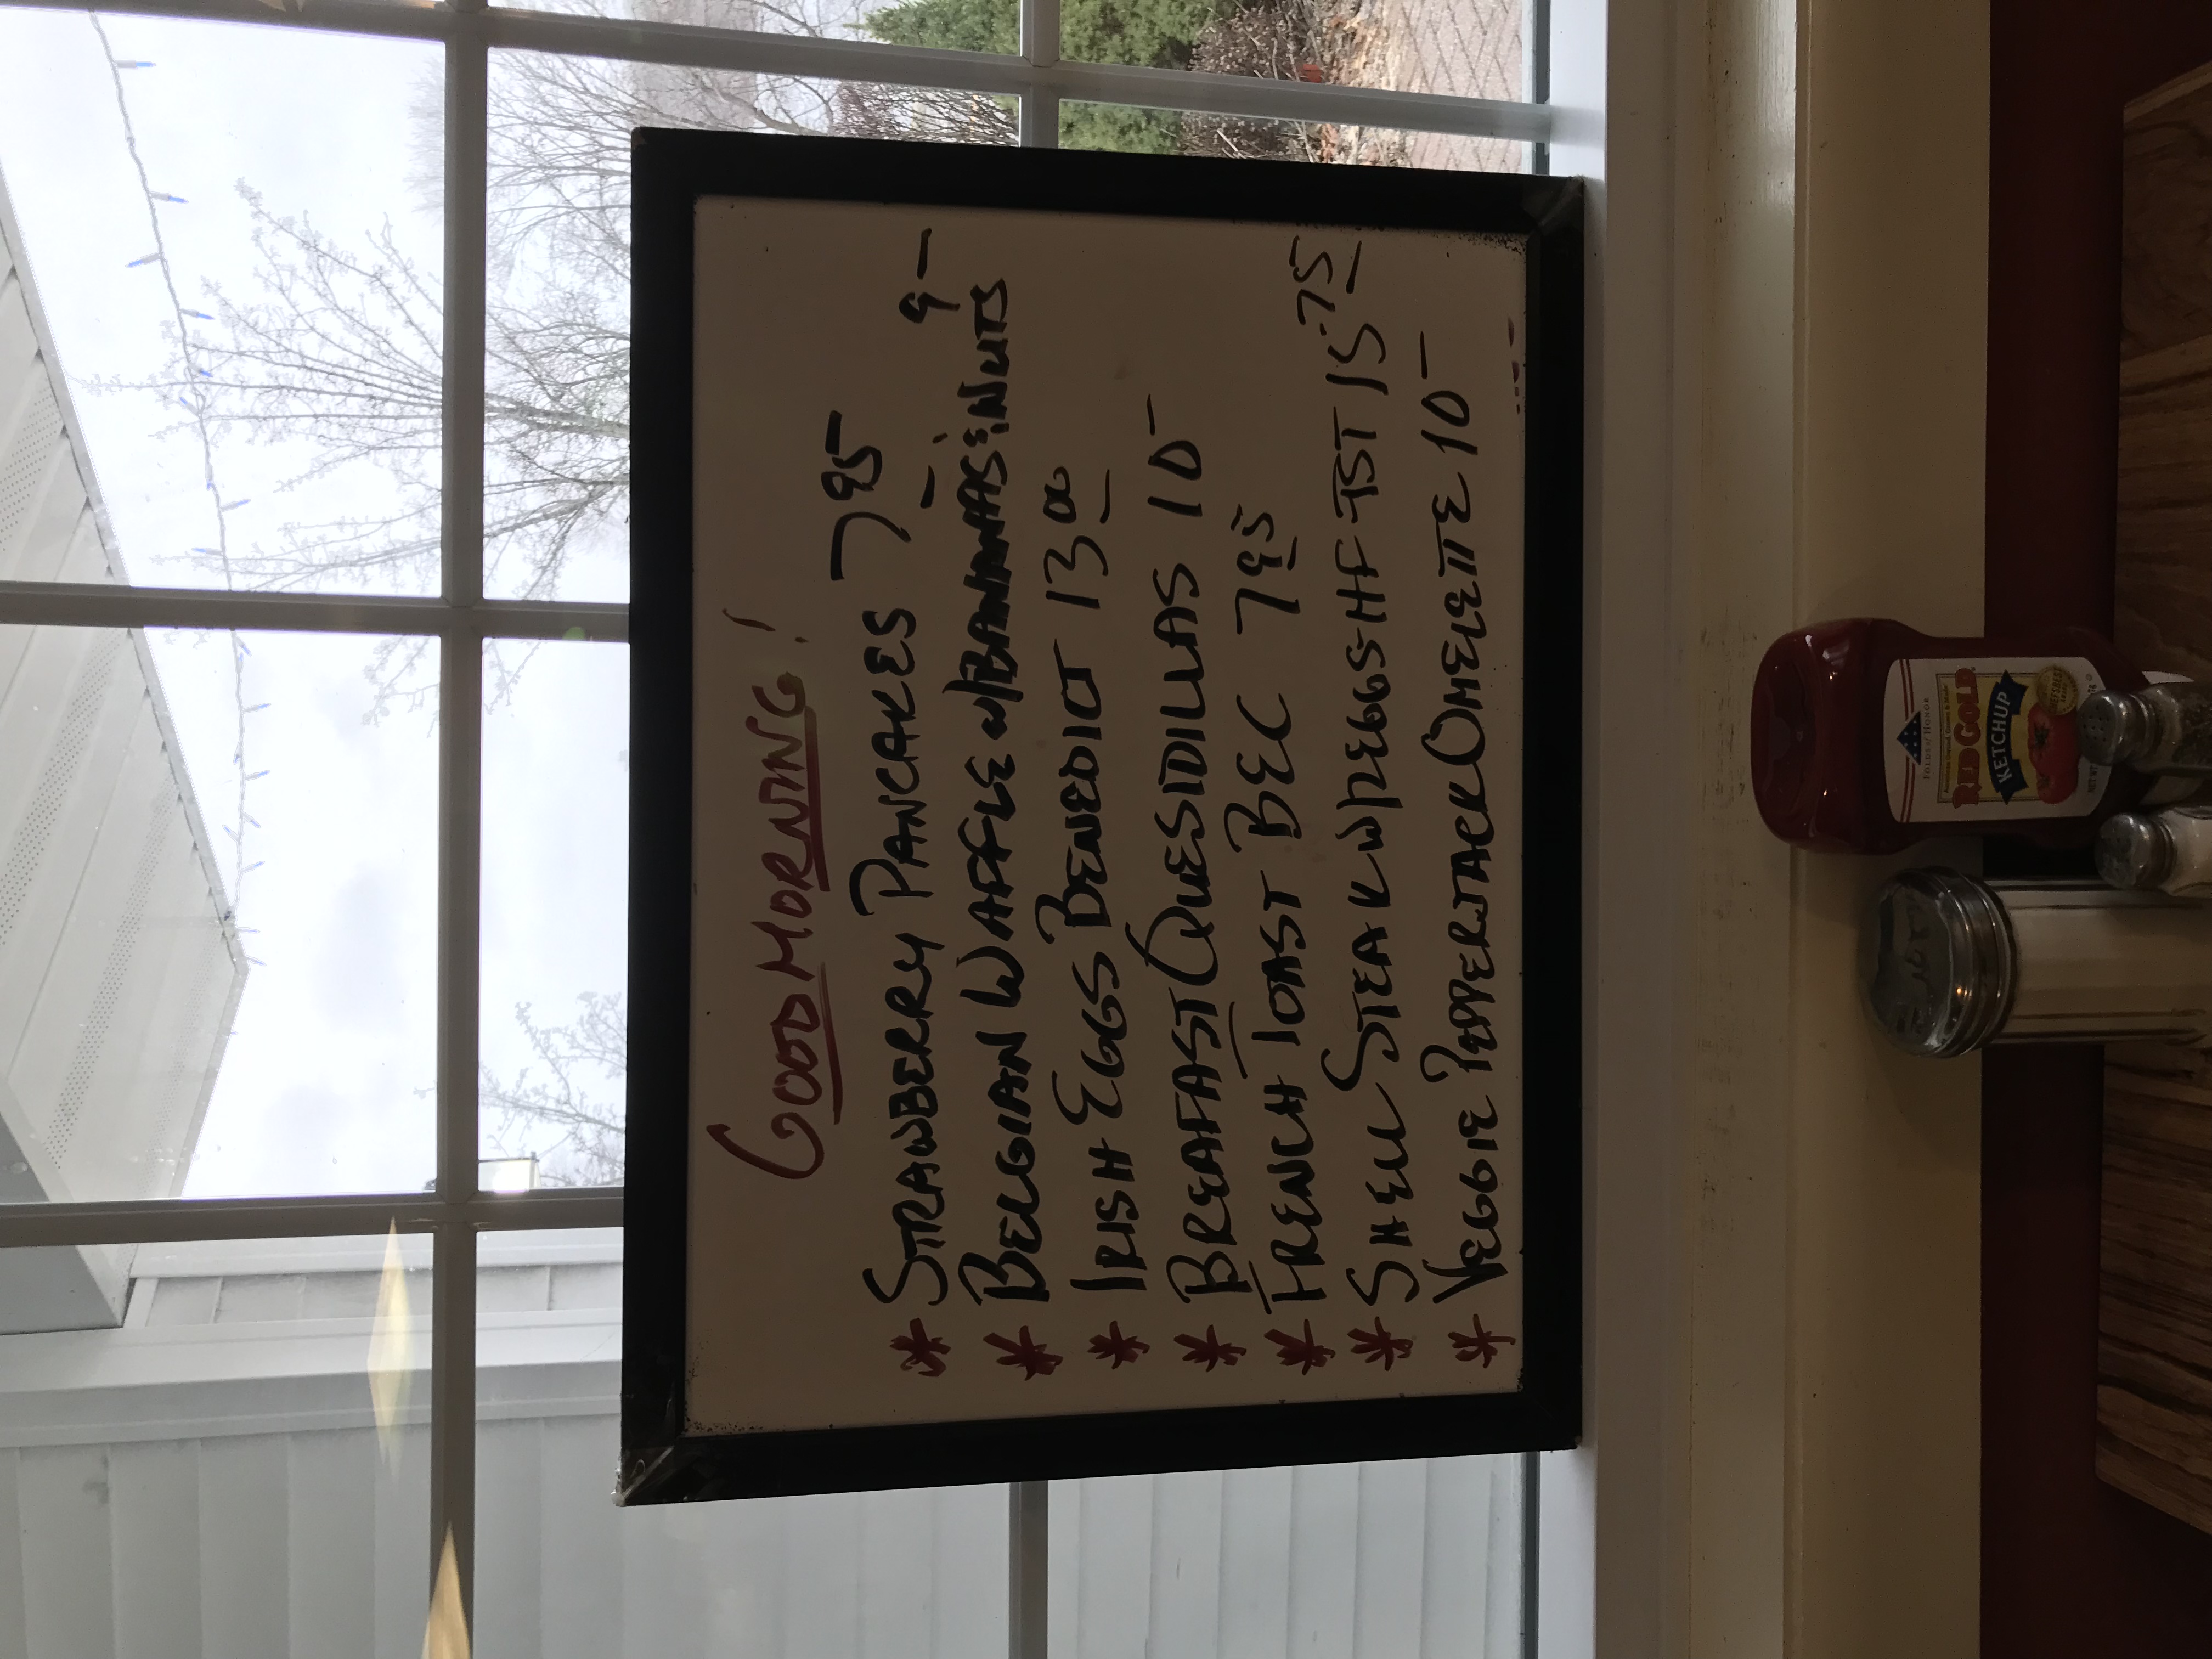 GOOD MORNING!
* STRAWBERRY PANCAKES 7 95
* BELGIAN WAFFLE W/BANANAS & NUTS 9-
* IRISH EGGS BENEDICT 13 00
* BREAFAST QUESIDILLAS 10-
* FRENCH TOAST BEC 7 95
* SHELL STEAK W/2EGGSHFTST 15.75
* VEGGIE PEPPERJACK OMELETTE 10-
FOLDS of HONOR
RED GOLD
KETCHUP